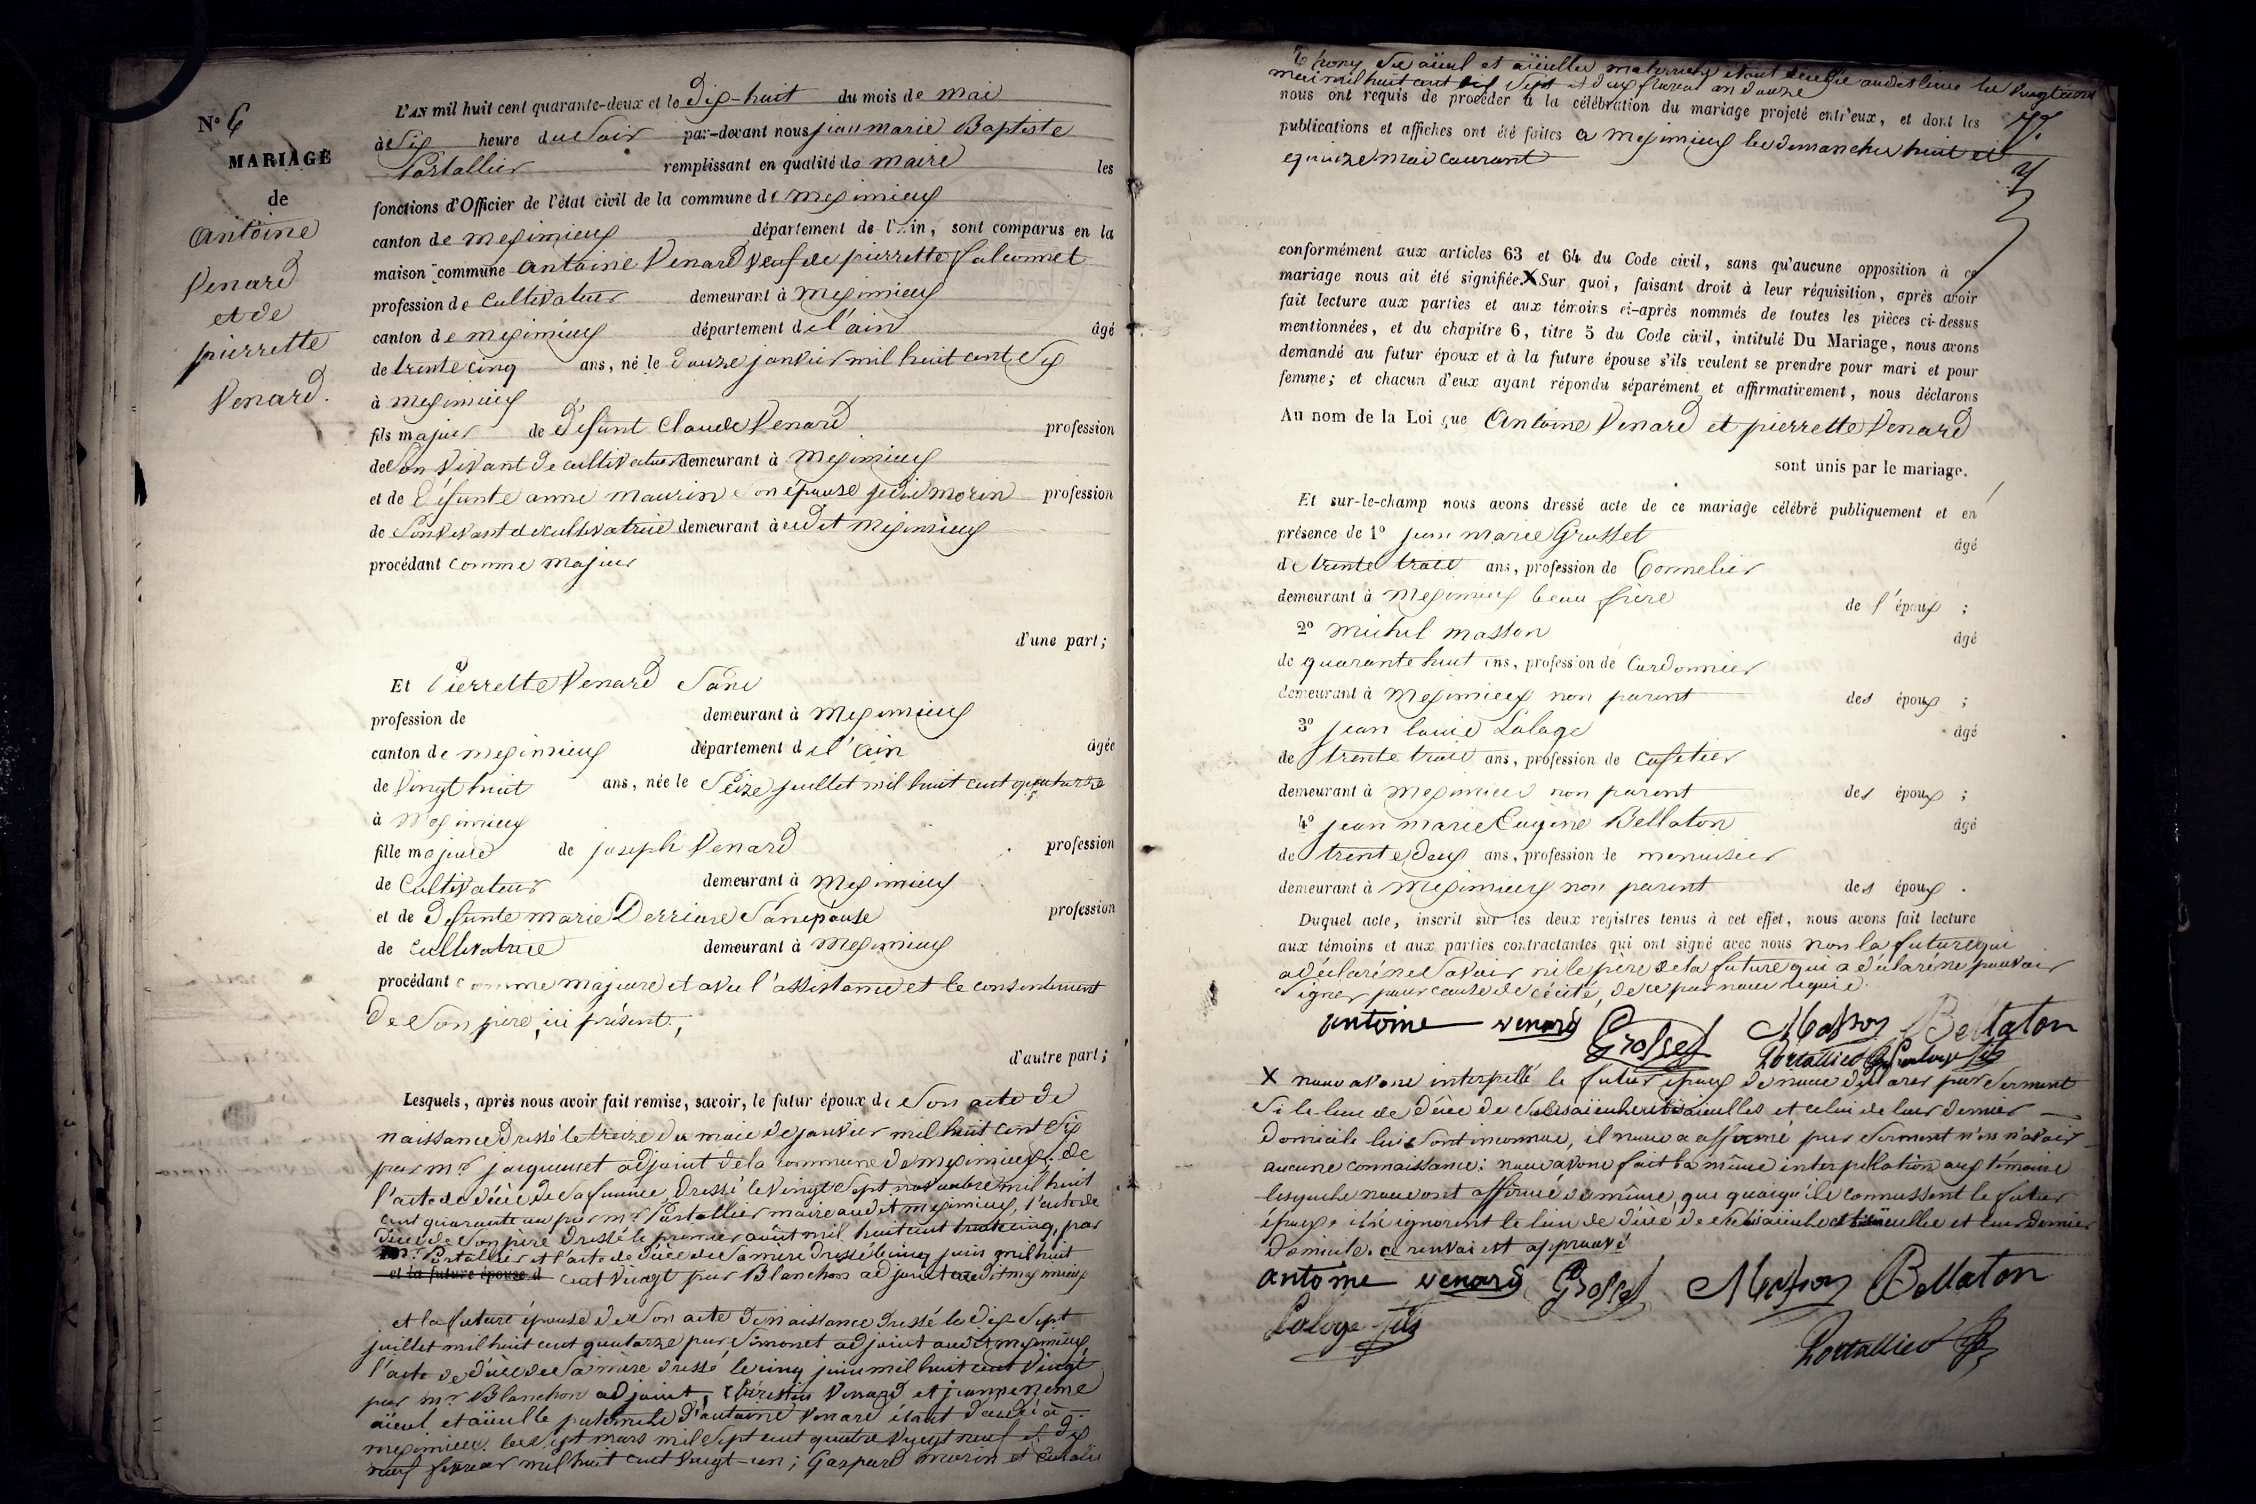 N° 6
MARIAGE
de
antoine
Venard
et de
pierrette
Venard.
L'AN mil huit cent quarante-deux et le Dix-huit du mois de mai
à Six heure du Soir par-devant nous jean marie Baptiste
Portallier remplissant en qualité de maire les
fonctions d'Officier de l'état civil de la commune de meximieux
canton de meximieux département de l'Ain, sont comparus en la
maison commune antoine Venard Veuf de pierrette falconnet
profession de cultivateur demeurant à meximieux
canton de meximieux département de l'ain âgé
de trente cinq ans, né le Douze janvier mil huit cent Six
à meximieux
fils majeur de Défunt Claude Venard profession
de Son Vivant de cultivateur demeurant à meximieux
et de Défunte anne maurin Son épouse profession
de Son Vivant de cultivatrice demeurant à udit meximieux
procédant comme majeur
d'une part;
Et Pierrette Venard Sans
profession de demeurant à meximieux
canton de meximieux département de l'ain âgée
de Vingt huit ans, née le Seize juillet mil huit cent quatorze
à meximieux
fille majeure de joseph Venard profession
de Cultivateur demeurant à meximieux
et de Defunte marie Derriare Son épouse profession
de cultivatrice demeurant à meximieux
procédant comme majeure et avec l'assistance et le consentement
De Son père, ici présent,
d'autre part;
Lesquels, après nous avoir fait remise, savoir, le futur époux de Son acte de
naissance Dressé le treize du mois de janvier mil huit cent Six
par mr jacquemet adjoint de la commune de meximieux, de
l'acte de décès de Sa femme, Dressé le Vingt Sept novembre mil huit
cent quarante un par mr Portallier maire audit meximieux, l'acte de
décès de Son père Dressé le premier août mil huit cent trente cinq, par
mr Portallier et l'acte de décès de Sa mère Dressé le cinq juin mil huit
et la future épouse d cent Vingt par Blanchon adjoint audit meximieux
et la future épouse de Son acte de naissance Dressé le Dix Sept
juillet mil huit cent quatorze par Simonet adjoint audit meximieux
l'acte de décès de Sa mère dressé le cinq juin mil huit cent Vingt
par mr Blanchon adjoint, Christin Venard et jeanne
aïeul et aïeulle paternels D'antoine Venard étant décédé à
meximieux les Sept mars mil Sept cent quatre Vingt neuf et Dix
neuf février mil huit cent Vingt-un; Gaspard morin et
Thony Ses aïeul et aïeulles maternels étant décédé audit lieu les Vingt
mai mil huit cent Sept et Deux floreal an Douze
nous ont requis de procéder à la célébration du mariage projeté entr'eux, et dont les
publications et affiches ont été faites à meximieux les dimanches huit et
quinze mai courant
conformément aux articles 63 et 64 du Code civil, sans qu'aucune opposition à ce
mariage nous ait été signifiée.X Sur quoi, faisant droit à leur réquisition, après avoir
fait lecture aux parties et aux témoins ci-après nommés de toutes les pièces ci-dessus
mentionnées, et du chapitre 6, titre 5 du Code civil, intitulé Du Mariage, nous avons
demandé au futur époux et à la future épouse s'ils veulent se prendre pour mari et pour
femme; et chacun d'eux ayant répondu séparément et affirmativement, nous déclarons
Au nom de la Loi que Antoine Venard et pierrette Venard
sont unis par le mariage.
Et sur-le-champ nous avons dressé acte de ce mariage célébré publiquement et en
présence de 1° jean marie Grosset âgé
de trente trois ans, profession de Tonnelier
demeurant à meximieux beau frère de l'époux ;
2° michel masson âgé
de quarante huit ans, profession de Cordonnier
demeurant à meximieux non parent des époux ;
3° jean louis Laloge âgé
de trente trois ans, profession de cafetier
demeurant à meximieux non parent des époux ;
4° jean marie Eugène Bellaton âgé
de trente Deux ans, profession de menuisier
demeurant à meximieux non parent des époux .
Duquel acte, inscrit sur les deux registres tenus à cet effet, nous avons fait lecture
aux témoins et aux parties contractantes qui ont signé avec nous non la future qui
a déclaré ne Savoir ni le père de la future qui a déclaré ne pouvoir
Signer pour cause de cécité, de ce par nous requis.
antoine venard Grosset Masson Bellaton
Portallier Laloge fils
X nous avons interpellé le futur époux de nous déclarer par Serment
Si le lieu de Décès de Ses bisaïeuls et bisaïeulles et celui de leur dernier
Domicile lui Sont inconnus, il nous a affirmé par Serment n'en avoir
aucune connaissance; nous avons fait la même interpellation aux témoins
lesquels nous ont affirmé de même, que quoiqu'ils connussent le futur
époux, ils ignorent le lieu de décès de Ses bisaïeuls et bisaïeulles et leur Dernier
Domicile. ce renvoi est approuvé
antoine venard Grosset Masson Bellaton
Laloge fils
Portallier